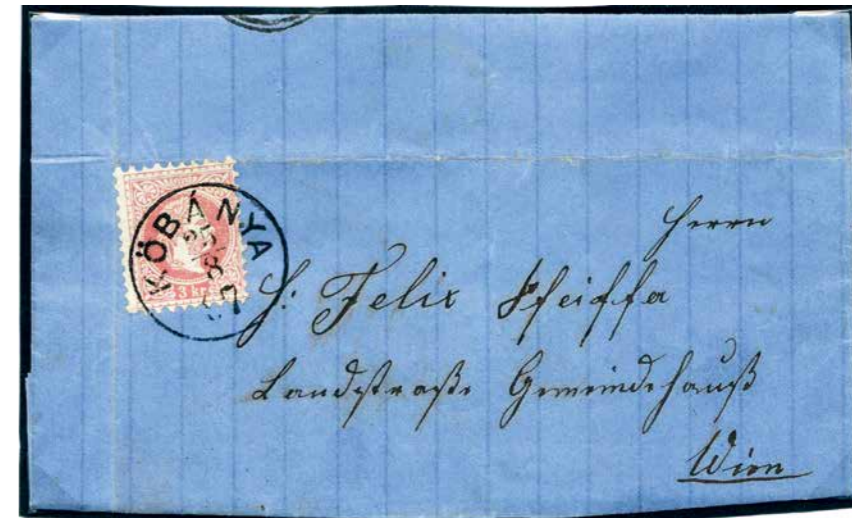 KÖBÁNYA
25
8
3 kr
Herrn
H: Felix Pfeiffer
Landstraße Gemeindehauß
Wien